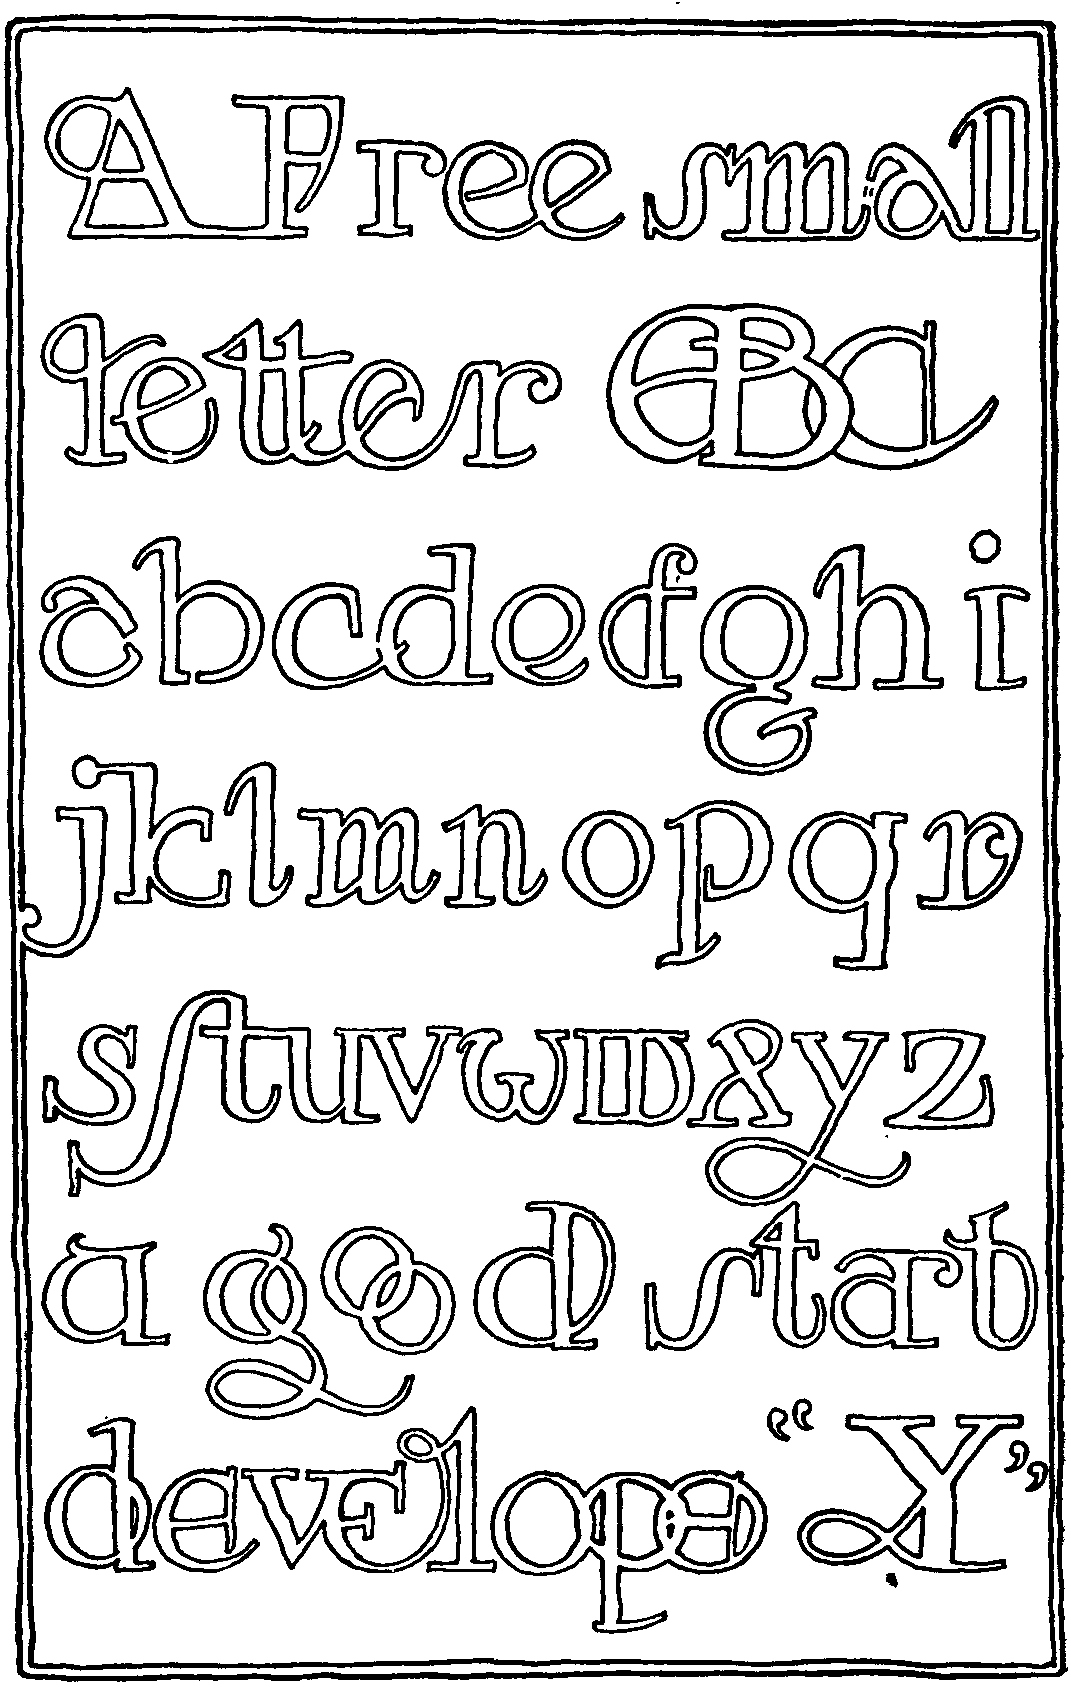 A Free small
letter ABC
abcdefghi
jklmnopqr
sstuvwwxyz
a good start
develope “Y”